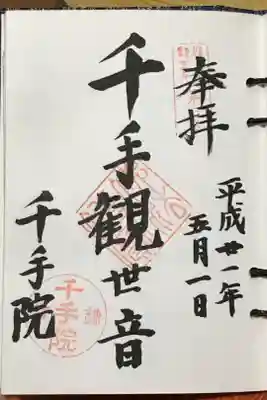 奉拝
平成廿一年
五月一日
千手観世音
千手院
千手院